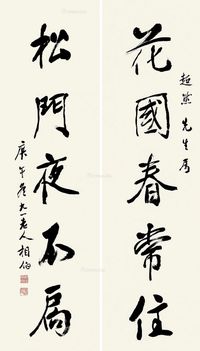 花國春常住
先生屬
松門夜不扃
庚午九一老人相伯